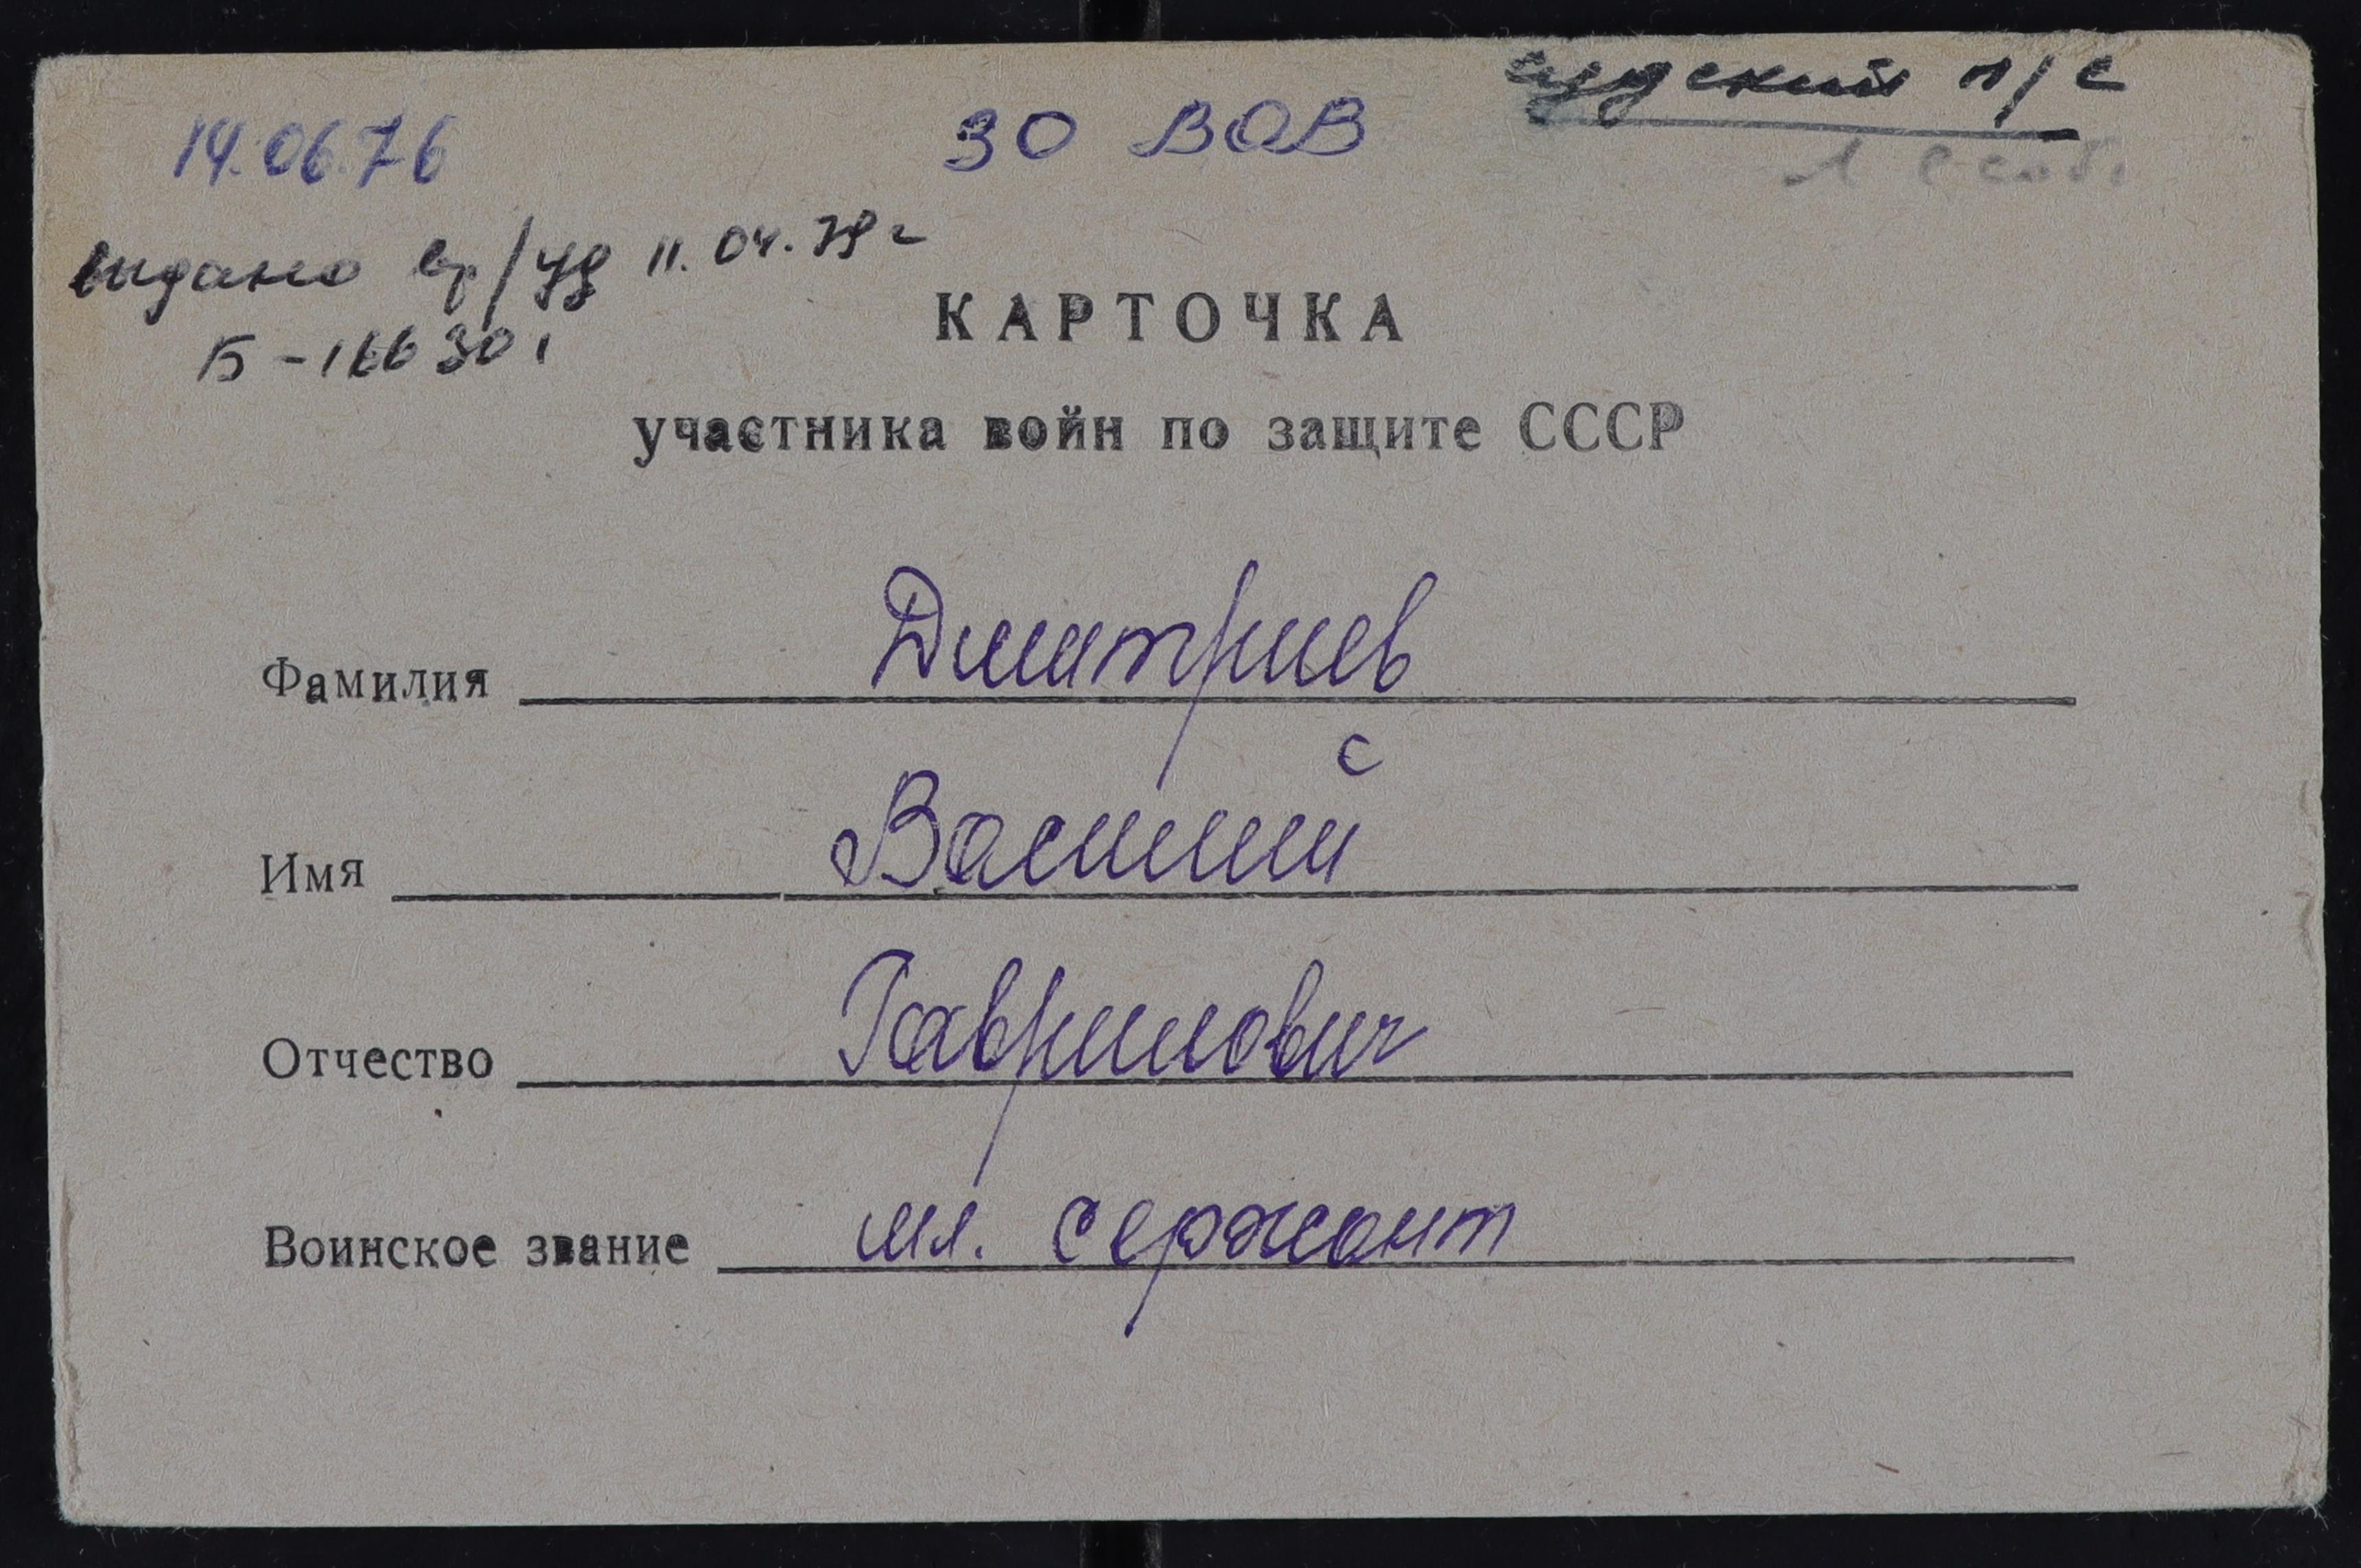 п/с
14.06.76
30 ВОВ
выдано вр/уд 11.04.79 г
Б-166301
КАРТОЧКА
участника войн по защите СССР
Фамилия Дмитриев
Имя Василий
Отчество Гаврилович
Воинское звание мл. сержант